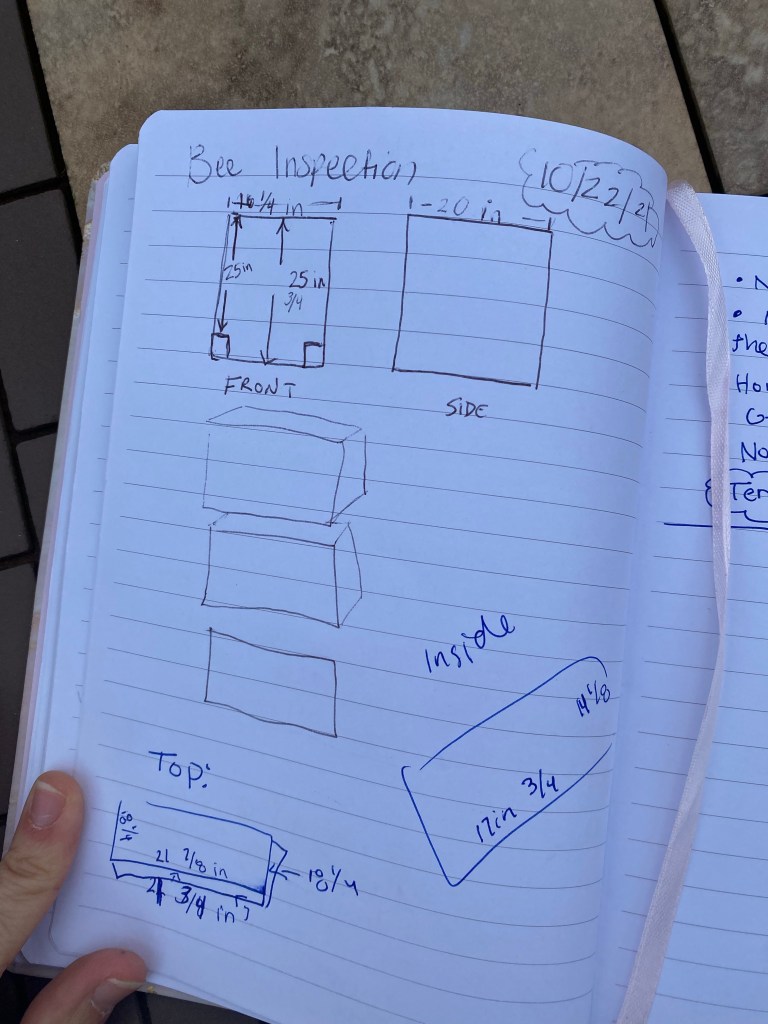 Bee Inspection
10/22/21
1/4 in
20 in
25in
25 in
3/4
FRONT
SIDE
Inside
14 1/8
17in 3/4
Top:
21 7/8 in
3/4 in
1/4
• N
•
the
Hon
G
No
Ten